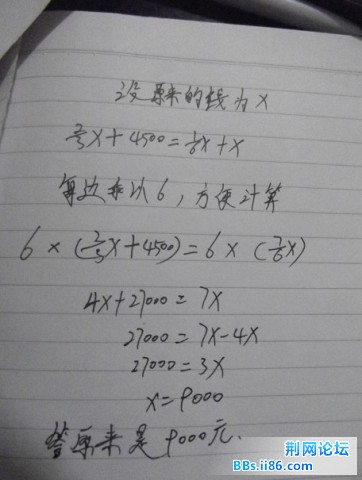 设原来的钱为X
2/3X+4500=1/6X+X
每边乘以6,方便计算
6×(2/3X+4500)=6×(7/6X)
4X+27000=7X
27000=7X-4X
27000=3X
X=9000
答原来是9000元.
荆网论坛
BBs.ii86.com